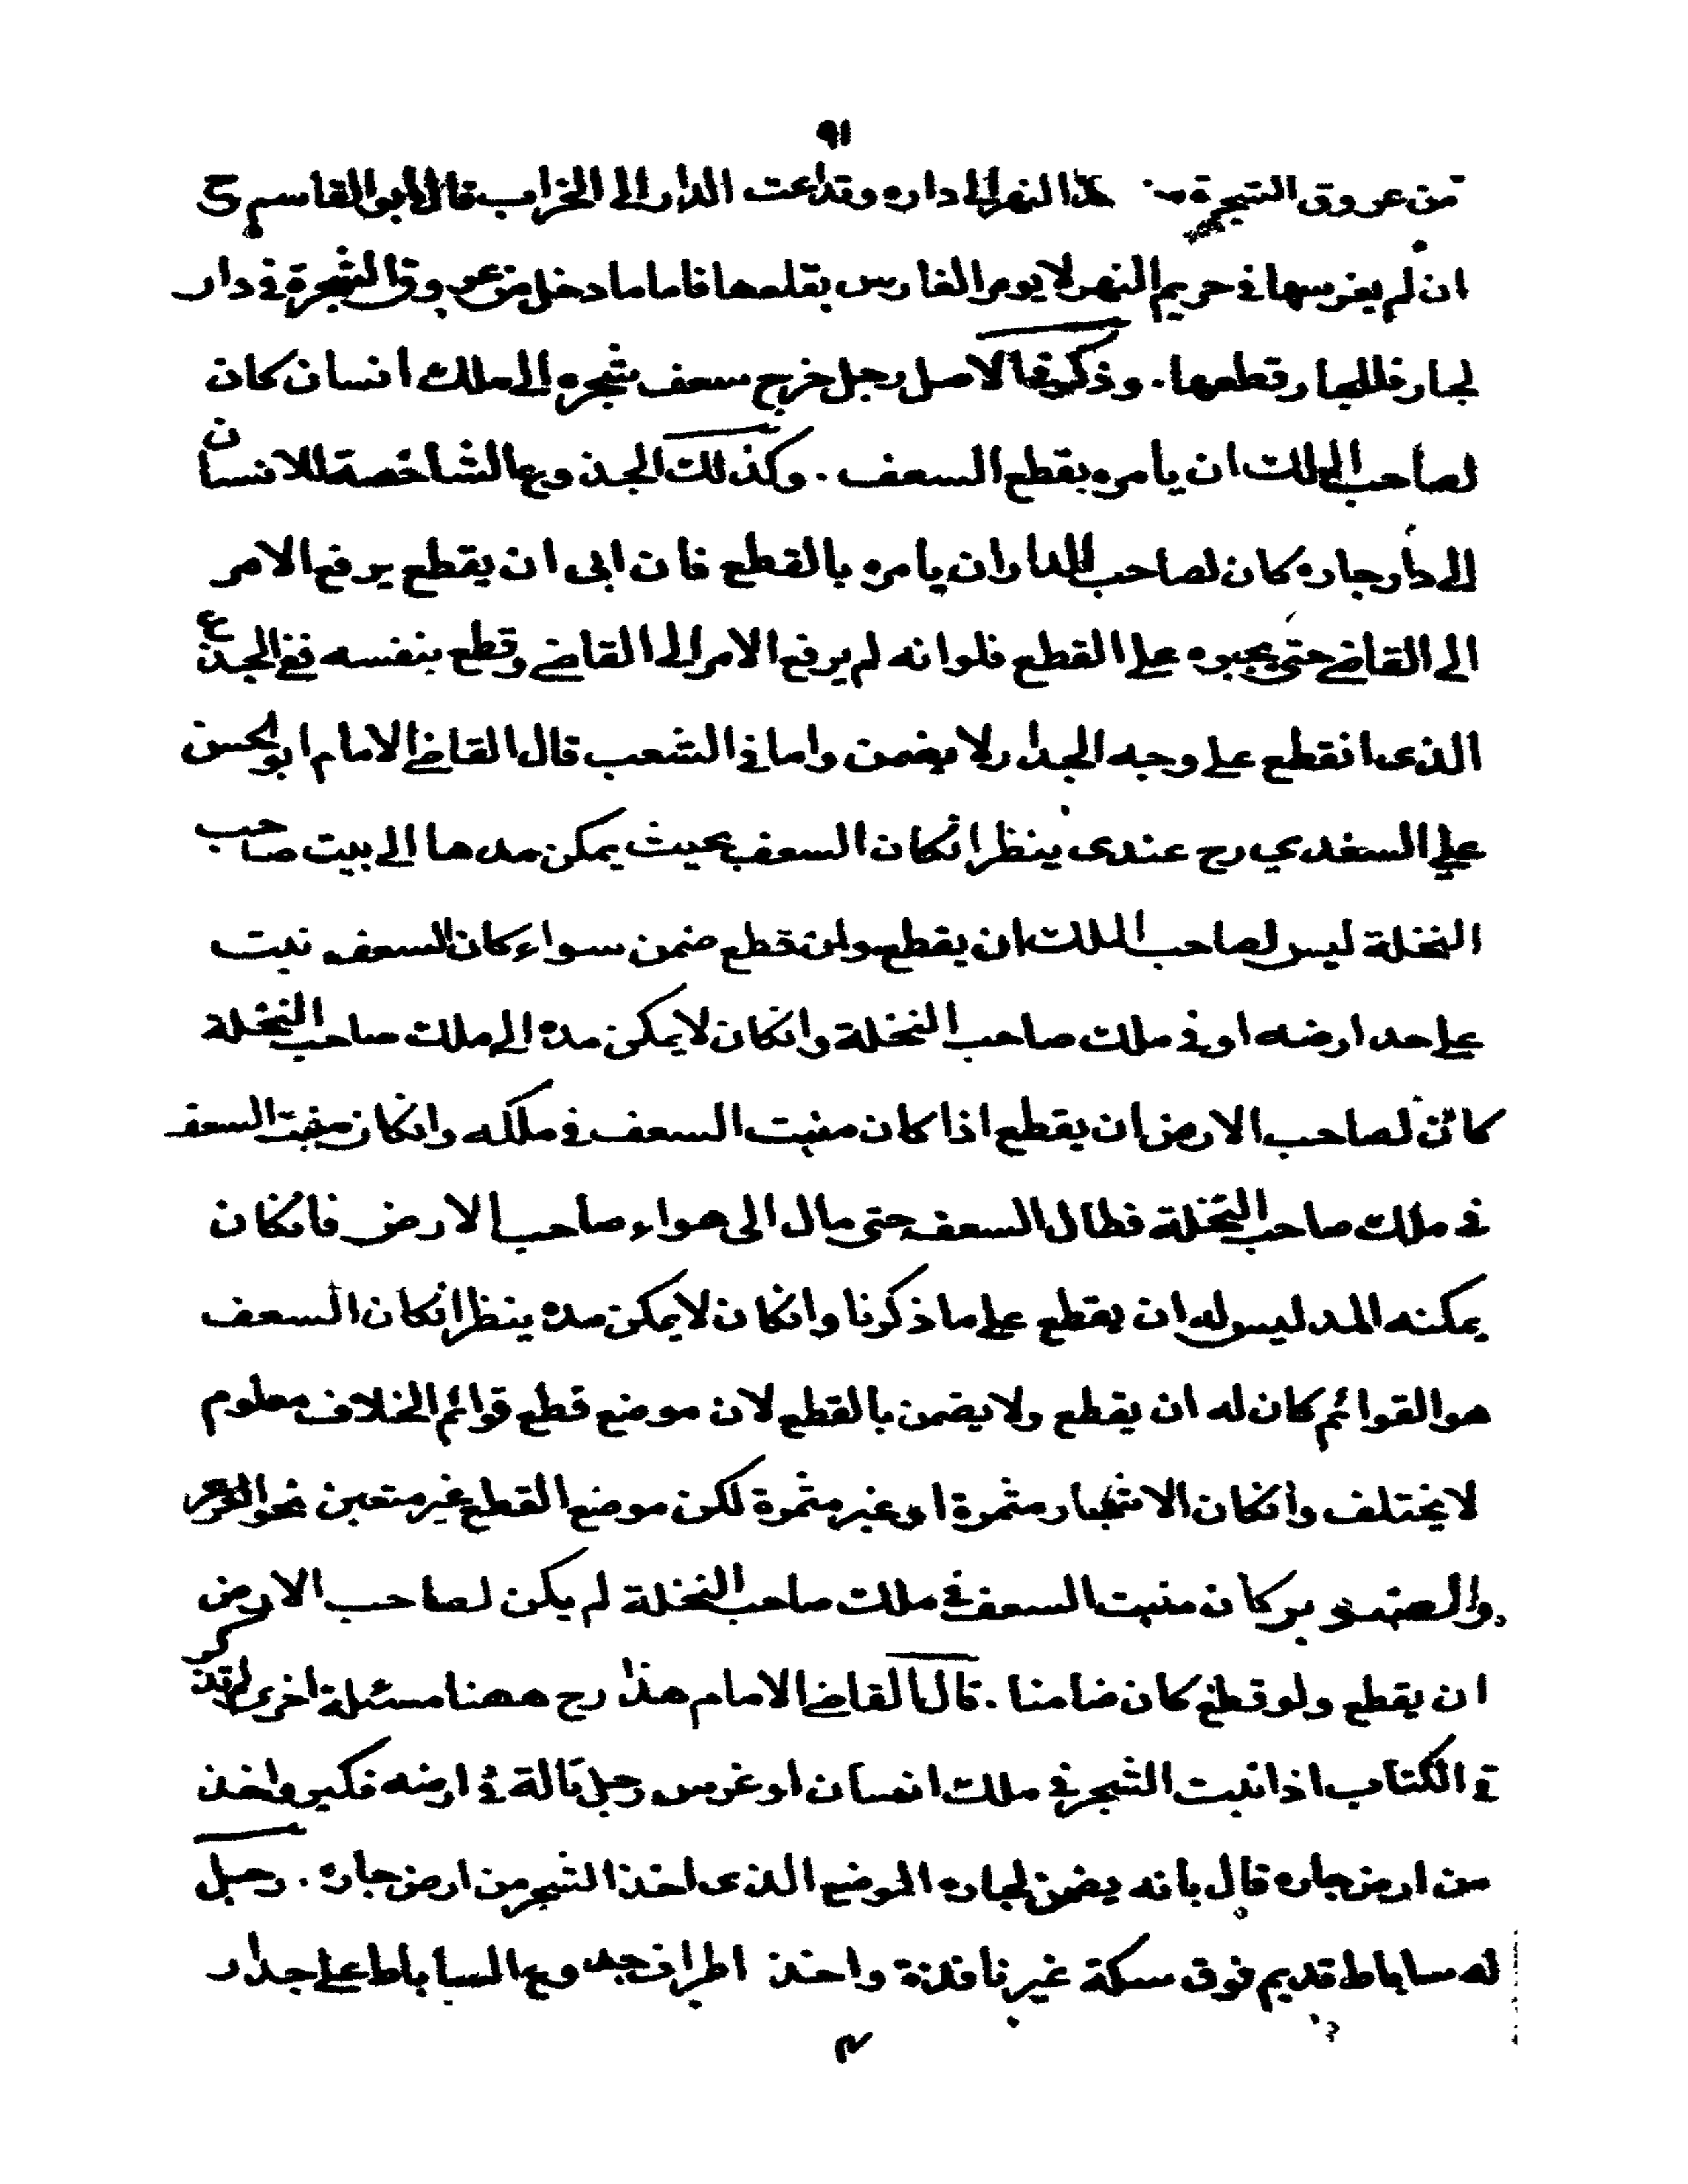 ٩١
من عروق الشجرة من هذا النهر الى داره وتداعت الدار الى الخراب قال ابو القاسم رح
ان لم يغرسها في حريم النهر لا يومر الغارس بقلعها فاما ما دخل من عروق الشجرة في دار
لجار فللجار قطعها . وذكر في الاصل رجل خرج سعف شجره الى ملك انسان كان
لصاحب الملك ان يأمره بقطع السعف . وكذلك الجذوع الشاخصة للانسان
الى دار جاره كان لصاحب الدار ان يامره بالقطع فان ابى ان يقطع يرفع الامر
الى القاضي حتى يجبره على القطع فلو انه لم يرفع الامر الى القاضي وقطع بنفسه ففي الجذع
الذى انقطع على وجه الجدار لا يضمن واما في الشعب قال القاضي الامام ابو الحسن
علي السغدي رح عندى ينظر انكان السعف بحيث يمكن مدها الى بيت صاحب
النخلة ليس لصاحب الملك ان يقطع ولن قطع ضمن سواء كان السعف نبت
على حد ارضه او في ملك صاحب النخلة وانكان لا يمكن مده الى ملك صاحب النخلة
كان لصاحب الارض ان يقطع اذا كان منبت السعف في ملكه وانكان منبت السعف
في ملك صاحب النخلة فطال السعف حتى مال الى هواء صاحب الارض فانكان
يمكنه المد ليس له ان يقطع على ما ذكرنا وانكان لا يمكن مده ينظر انكان السعف
هو القوائم كان له ان يقطع ولا يضمن بالقطع لان موضع قطع قوائم الخلاف معلوم
لا يختلف وانكان الاشجار مثمرة او غير مثمرة لكن موضع القطع غير متعين نحو العرعر
والصنوبر كان منبت السعف في ملك صاحب النخلة لم يكن لصاحب الارض
ان يقطع ولو قطع كان ضامنا . قال القاضي الامام هذا رح ههنا مسئلة اخرى لم تذكر
في الكتاب اذا نبت الشجر في ملك انسان او غرس رجل تالة في ارضه فكبر واخذ
من ارض جاره قال بانه يضمن لجاره الموضع الذى اخذ الشجر من ارض جاره . رجل
له ساباط قديم فوق سكة غير نافذة واخذ اطراف جذوع الساباط على جدار